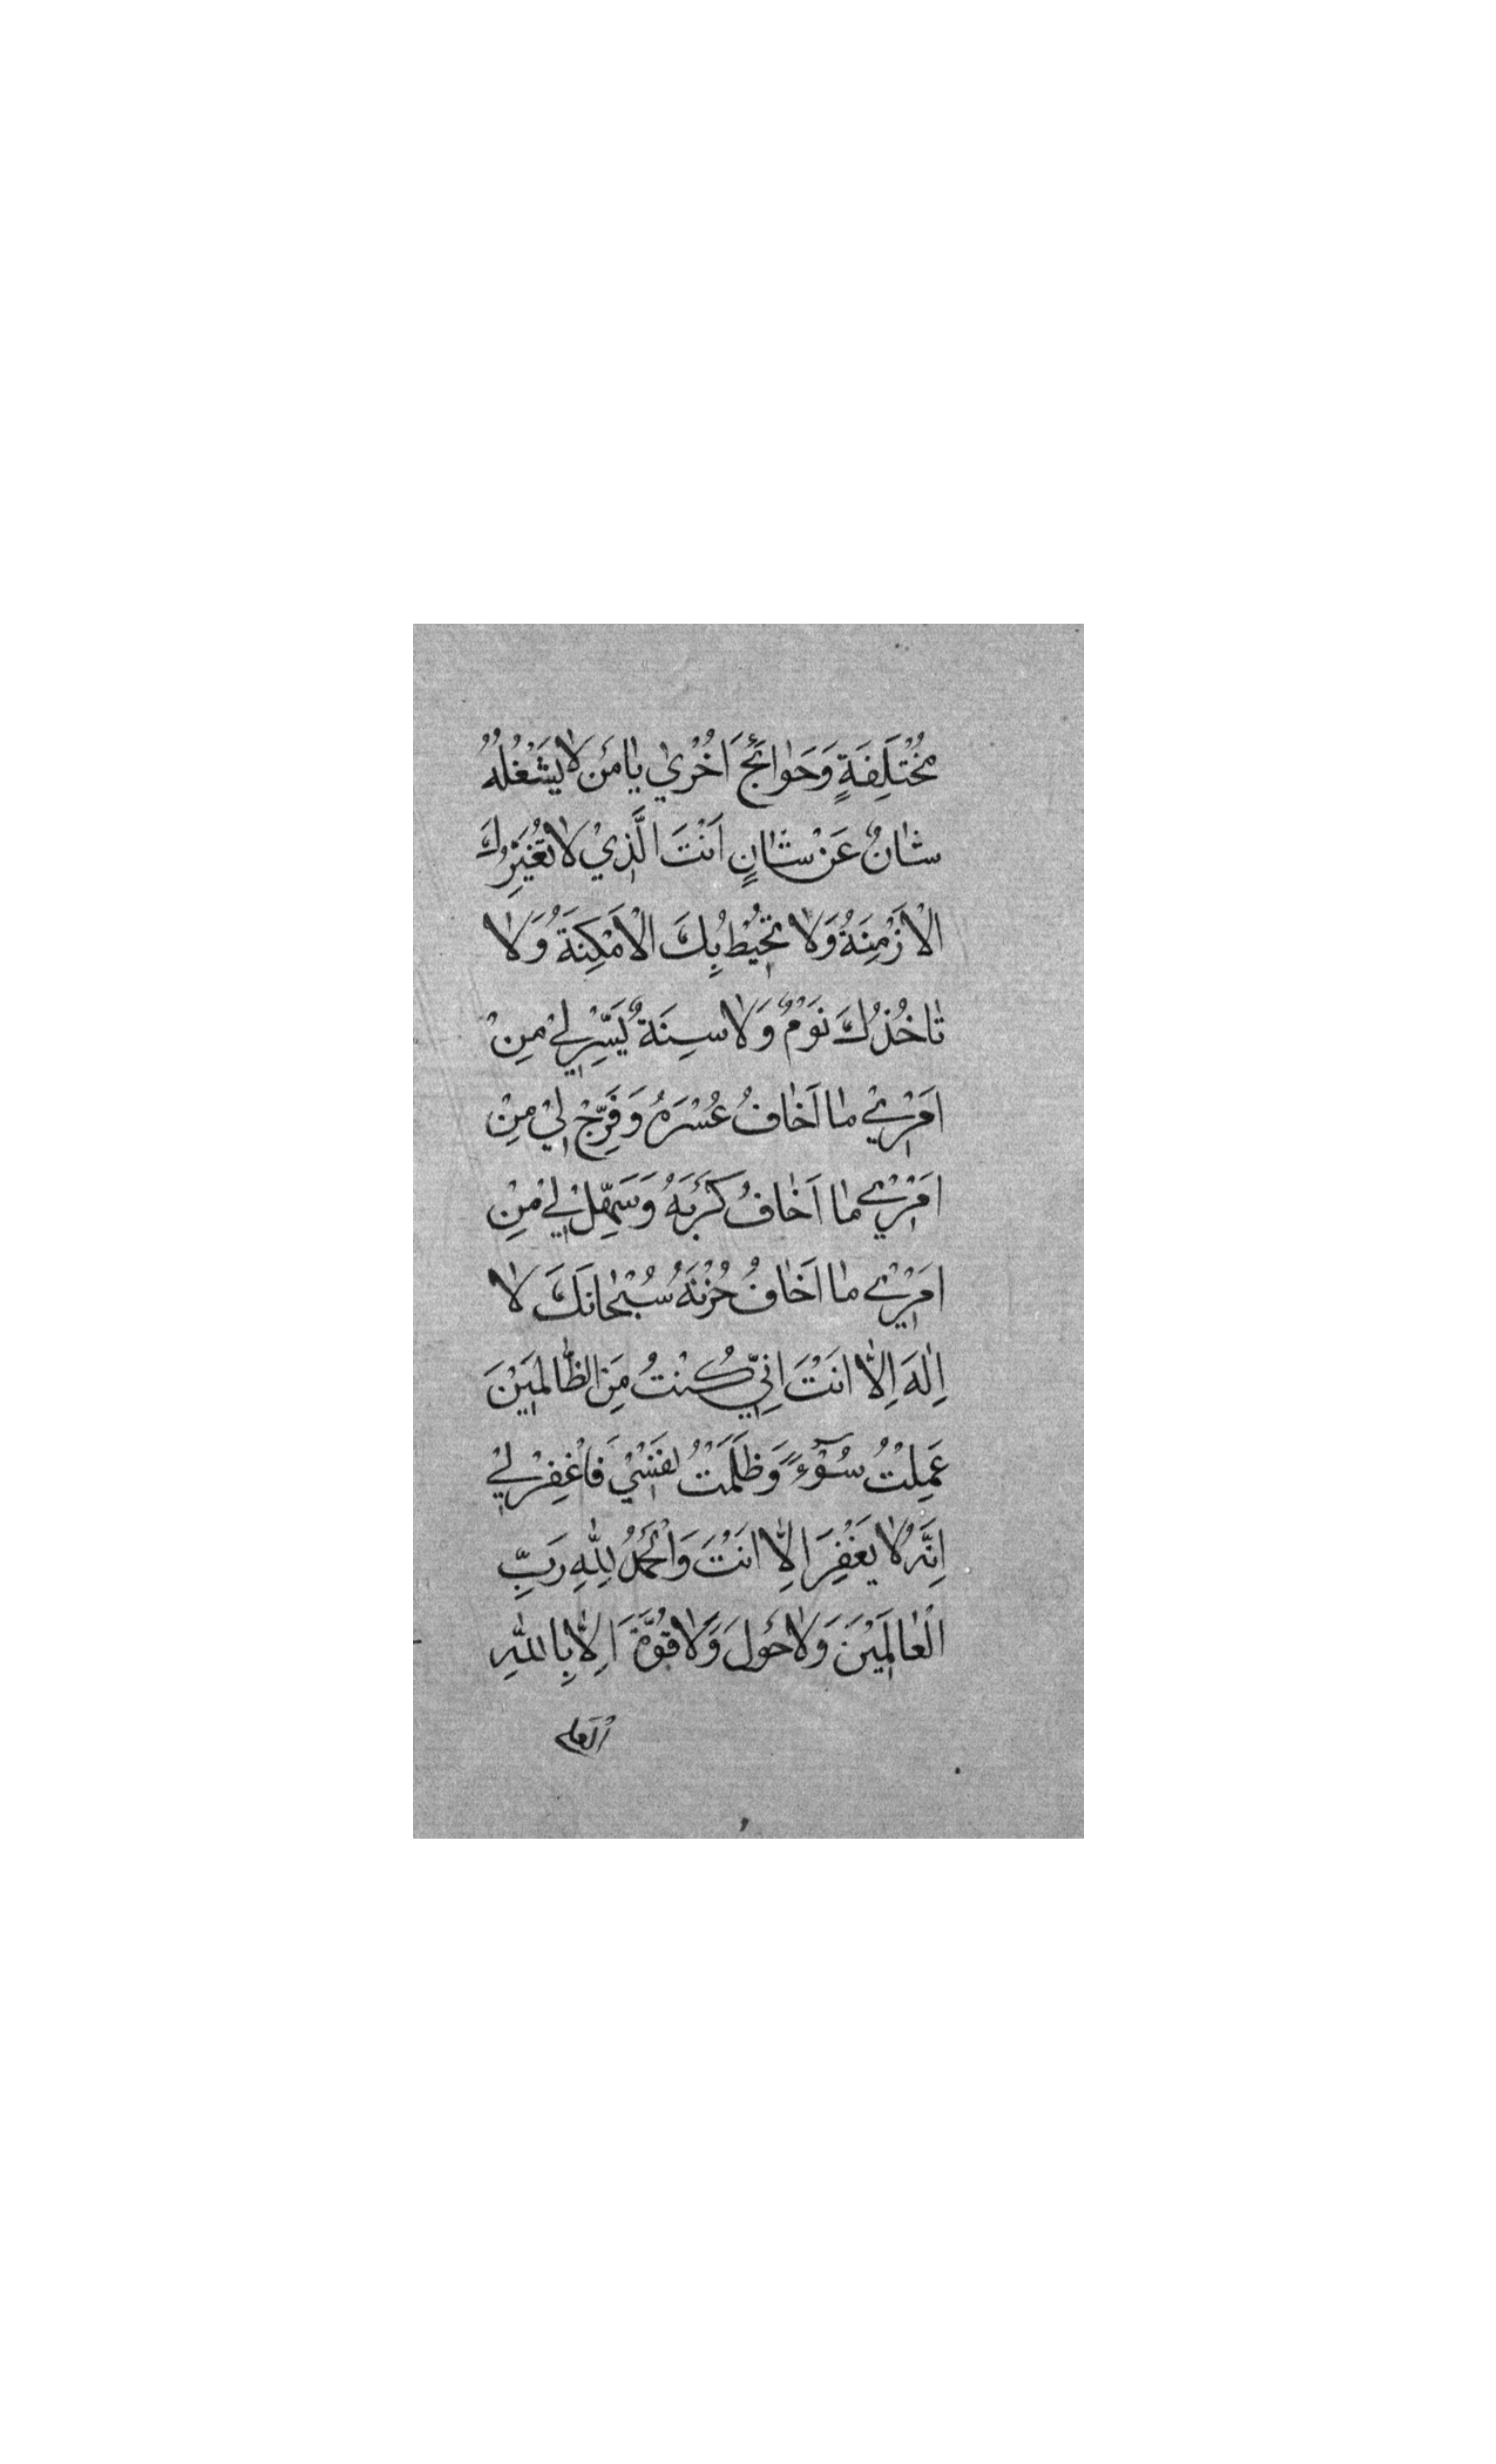 مُخْتَلِفَةٍ وَحَوٰائِجَ اُخْرىٰ يٰا مَنْ لاٰ يَشْغُلُهُ
شٰانٌ عَنْ شٰانٍ اَنْتَ الَّذِيْ لاٰ تُغَيِّرُكَ
الْاَزْمِنَةُ وَلاٰ تُحِيْطُ بِكَ الْاَمْكِنَةُ وَلاٰ
تٰاخُذُكَ نَوْمٌ وَلاٰ سِنَةٌ يَسِّرْ لِيْ مِنْ
اَمْرِيْ مٰا اَخٰافُ عُسْرَهُ وَفَرِّجْ لِيْ مِنْ
اَمْرِيْ مٰا اَخٰافُ كَرْبَهُ وَسَهِّلْ لِيْ مِنْ
اَمْرِيْ مٰا اَخٰافُ حُزْنَهُ سُبْحٰانَكَ لاٰ
اِلٰهَ اِلاّٰ اَنْتَ اِنِّيْ كُنْتُ مِنَ الظّٰالِمِيْنَ
عَمِلْتُ سُوْٓءً وَظَلَمْتُ نَفْسِيْ فَاغْفِرْ لِيْ
اِنَّهُ لاٰ يَغْفِرُ اِلاّٰ اَنْتَ وَالْحَمْدُ لِلّٰهِ رَبِّ
الْعٰالَمِيْنَ وَلاٰ حَوْلَ وَلاٰ قُوَّةَ اِلاّٰ بِاللّٰهِ
العلي